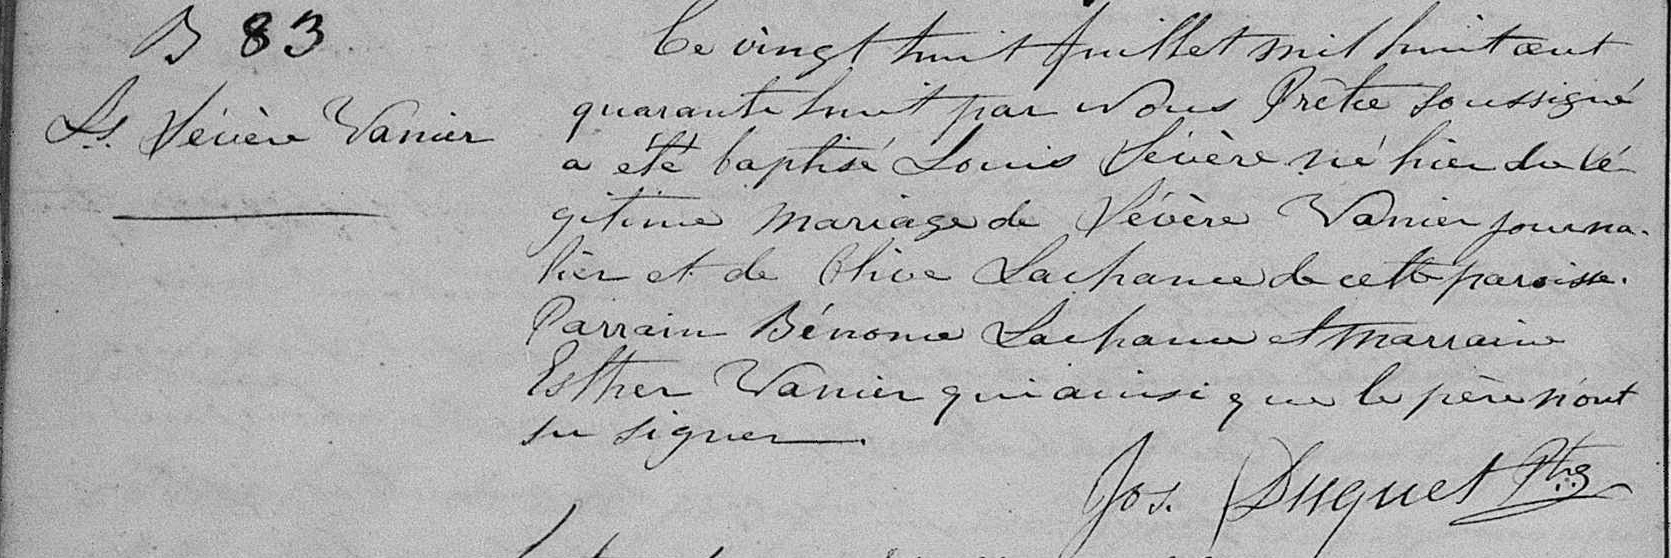 B 83
Ls. Sévère Vanier
Ce vingt huit Juillet mil huit cent
quarante huit par Nous Prêtre soussigné
a été baptisé Louis Sévère né hier du lé-
gitime mariage de Sévère Vanier journa-
lier et de Olive Lachance de cette paroisse.
Parrain Bénome Lachance et marraine
Esther Vanier qui ainsi que le père n'ont
su signer.
Jos. Duquet Ptre